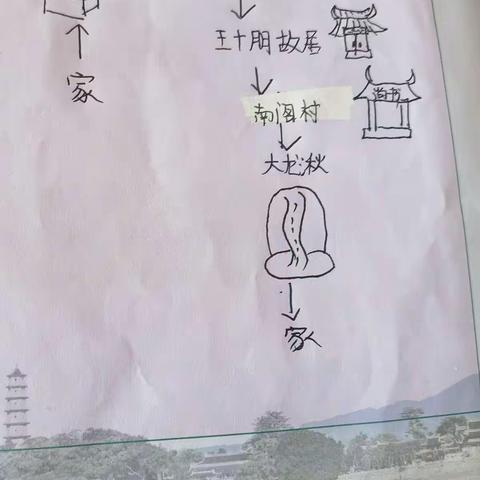 王十朋故居
家
尚书
南阁村
大龙湫
家